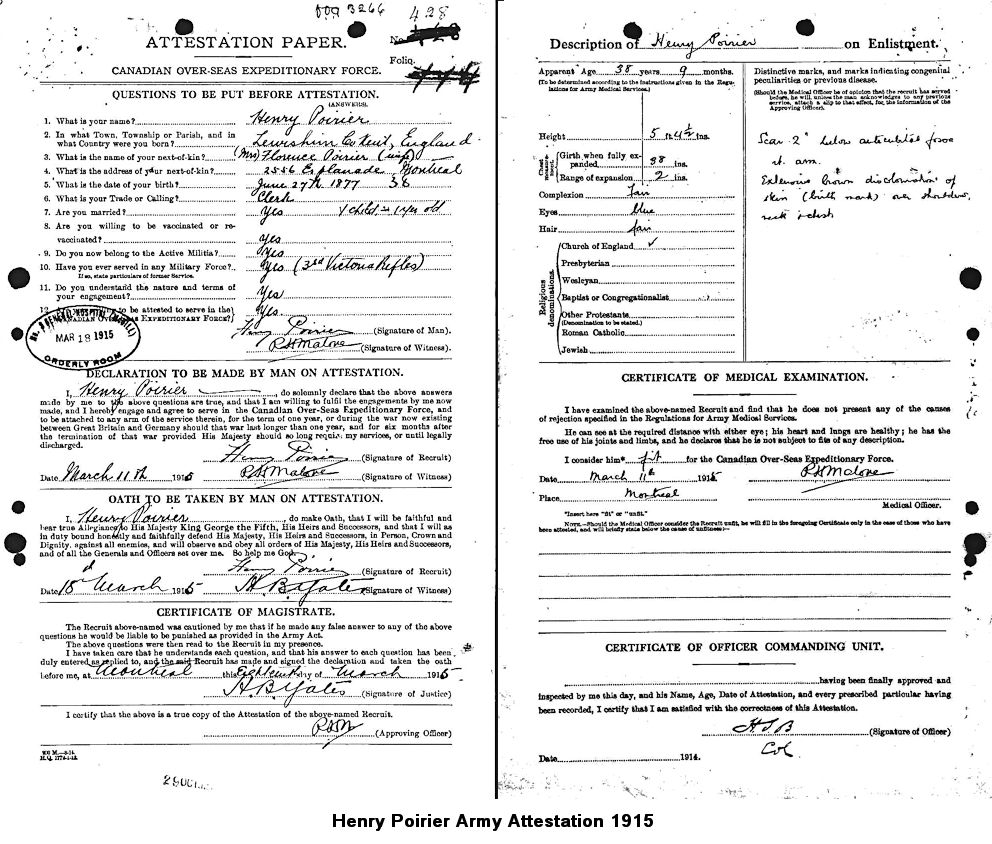 3266 428
ATTESTATION PAPER.
No.
Folio.
CANADIAN OVER-SEAS EXPEDITIONARY FORCE.
QUESTIONS TO BE PUT BEFORE ATTESTATION.
(ANSWERS).
1. What is your name? Henry Poirier
2. In what Town, Township or Parish, and in
what Country were you born? Lewishim Co Kent, England
3. What is the name of your next-of-kin? (Mrs) Florence Poirier (wife)
4. What is the address of your next-of-kin? 2556 Esplanade, Montreal
5. What is the date of your birth? June 27th 1877 36
6. What is your Trade or Calling? Clerk
7. Are you married? Yes
8. Are you willing to be vaccinated or re-
vaccinated? Yes
9. Do you now belong to the Active Militia? Yes
10. Have you ever served in any Military Force? Yes (3rd Victoria Rifles)
If so, state particulars of former Service.
11. Do you understand the nature and terms of
your engagement? Yes
to be attested to serve in the
CANADIAN OVER-SEAS EXPEDITIONARY FORCE? Yes
Henry Poirier (Signature of Man).
R H Malone (Signature of Witness).
MAR 18 1915
ORDERLY ROOM
DECLARATION TO BE MADE BY MAN ON ATTESTATION.
I, Henry Poirier, do solemnly declare that the above answers
made by me to the above questions are true, and that I am willing to fulfil the engagements by me
made, and I hereby engage and agree to serve in the Canadian Over-Seas Expeditionary Force, and
to be attached to any arm of the service therein, for the term of one year, or during the war now existing
between Great Britain and Germany should that war last longer than one year, and for six months after
the termination of that war provided His Majesty should so long require my services, or until legally
discharged.
Henry Poirier (Signature of Recruit)
Date March 11th 1915 R H Malone (Signature of Witness)
OATH TO BE TAKEN BY MAN ON ATTESTATION.
I, Henry Poirier, do make Oath, that I will be faithful and
bear true Allegiance to His Majesty King George the Fifth, His Heirs and Successors, and that I will as
in duty bound honestly and faithfully defend His Majesty, His Heirs and Successors, in Person, Crown and
Dignity, against all enemies, and will observe and obey all orders of His Majesty, His Heirs and Successors,
and of all the Generals and Officers set over me. So help me God.
Henry Poirier (Signature of Recruit)
Date 18 March 1915 A B Yates (Signature of Witness)
CERTIFICATE OF MAGISTRATE.
The Recruit above-named was cautioned by me that if he made any false answer to any of the above
questions he would be liable to be punished as provided in the Army Act.
The above questions were then read to the Recruit in my presence.
I have taken care that he understands each question, and that his answer to each question has been
duly entered as replied to, and the said Recruit has made and signed the declaration and taken the oath
before me, at Montreal this Eighteenth day of March 1915
A B Yates (Signature of Justice)
I certify that the above is a true copy of the Attestation of the above-named Recruit.
RHM (Approving Officer)
Description of Henry Poirier on Enlistment.
Apparent Age 38 years 9 months.
(To be determined according to the instructions given in the Regu-
lations for Army Medical Services.)
Height 5 ft 4½ ins.
Chest measurement.
Girth when fully ex-
panded 38 ins.
Range of expansion 2 ins.
Complexion fair
Eyes blue
Hair fair
Religious denominations.
Church of England ✓
Presbyterian
Wesleyan
Baptist or Congregationalist
Other Protestants
(Denomination to be stated.)
Roman Catholic
Jewish
Distinctive marks, and marks indicating congenial
peculiarities or previous disease.
(Should the Medical Officer be of opinion that the recruit has served
before, he will, unless the man acknowledges to any previous
service, attach a slip to that effect, for the information of the
Approving Officer).
Scar 2" below
arm.
Extensive brown discolouration of
skin (birth mark) over shoulders,
neck & chest
CERTIFICATE OF MEDICAL EXAMINATION.
I have examined the above-named Recruit and find that he does not present any of the causes
of rejection specified in the Regulations for Army Medical Services.
He can see at the required distance with either eye; his heart and lungs are healthy; he has the
free use of his joints and limbs, and he declares that he is not subject to fits of any description.
I consider him* fit for the Canadian Over-Seas Expeditionary Force.
Date March 11th 1915 R H Malone
Place Montreal
Medical Officer.
*Insert here "fit" or "unfit."
NOTE.—Should the Medical Officer consider the Recruit unfit, he will fill in the foregoing Certificate only in the case of those who have
been attested, and will briefly state below the cause of unfitness:—
CERTIFICATE OF OFFICER COMMANDING UNIT.
having been finally approved and
inspected by me this day, and his Name, Age, Date of Attestation, and every prescribed particular having
been recorded, I certify that I am satisfied with the correctness of this Attestation.
(Signature of Officer)
Col
Date 1914.
Henry Poirier Army Attestation 1915